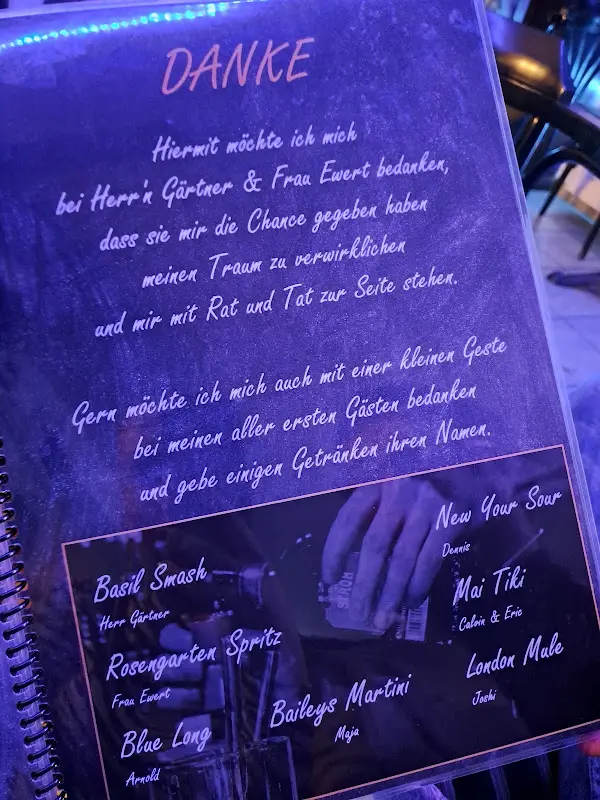 DANKE
Hiermit möchte ich mich
bei Herr'n Gärtner & Frau Ewert bedanken,
dass sie mir die Chance gegeben haben
meinen Traum zu verwirklichen
und mir mit Rat und Tat zur Seite stehen.
Gern möchte ich mich auch mit einer kleinen Geste
bei meinen aller ersten Gästen bedanken
und gebe einigen Getränken ihren Namen.
Basil Smash
Herr Gärtner
Rosengarten Spritz
Frau Ewert
Blue Long
Arnold
Baileys Martini
Maja
New Your Sour
Dennis
Mai Tiki
Calvin & Eric
London Mule
Joshi